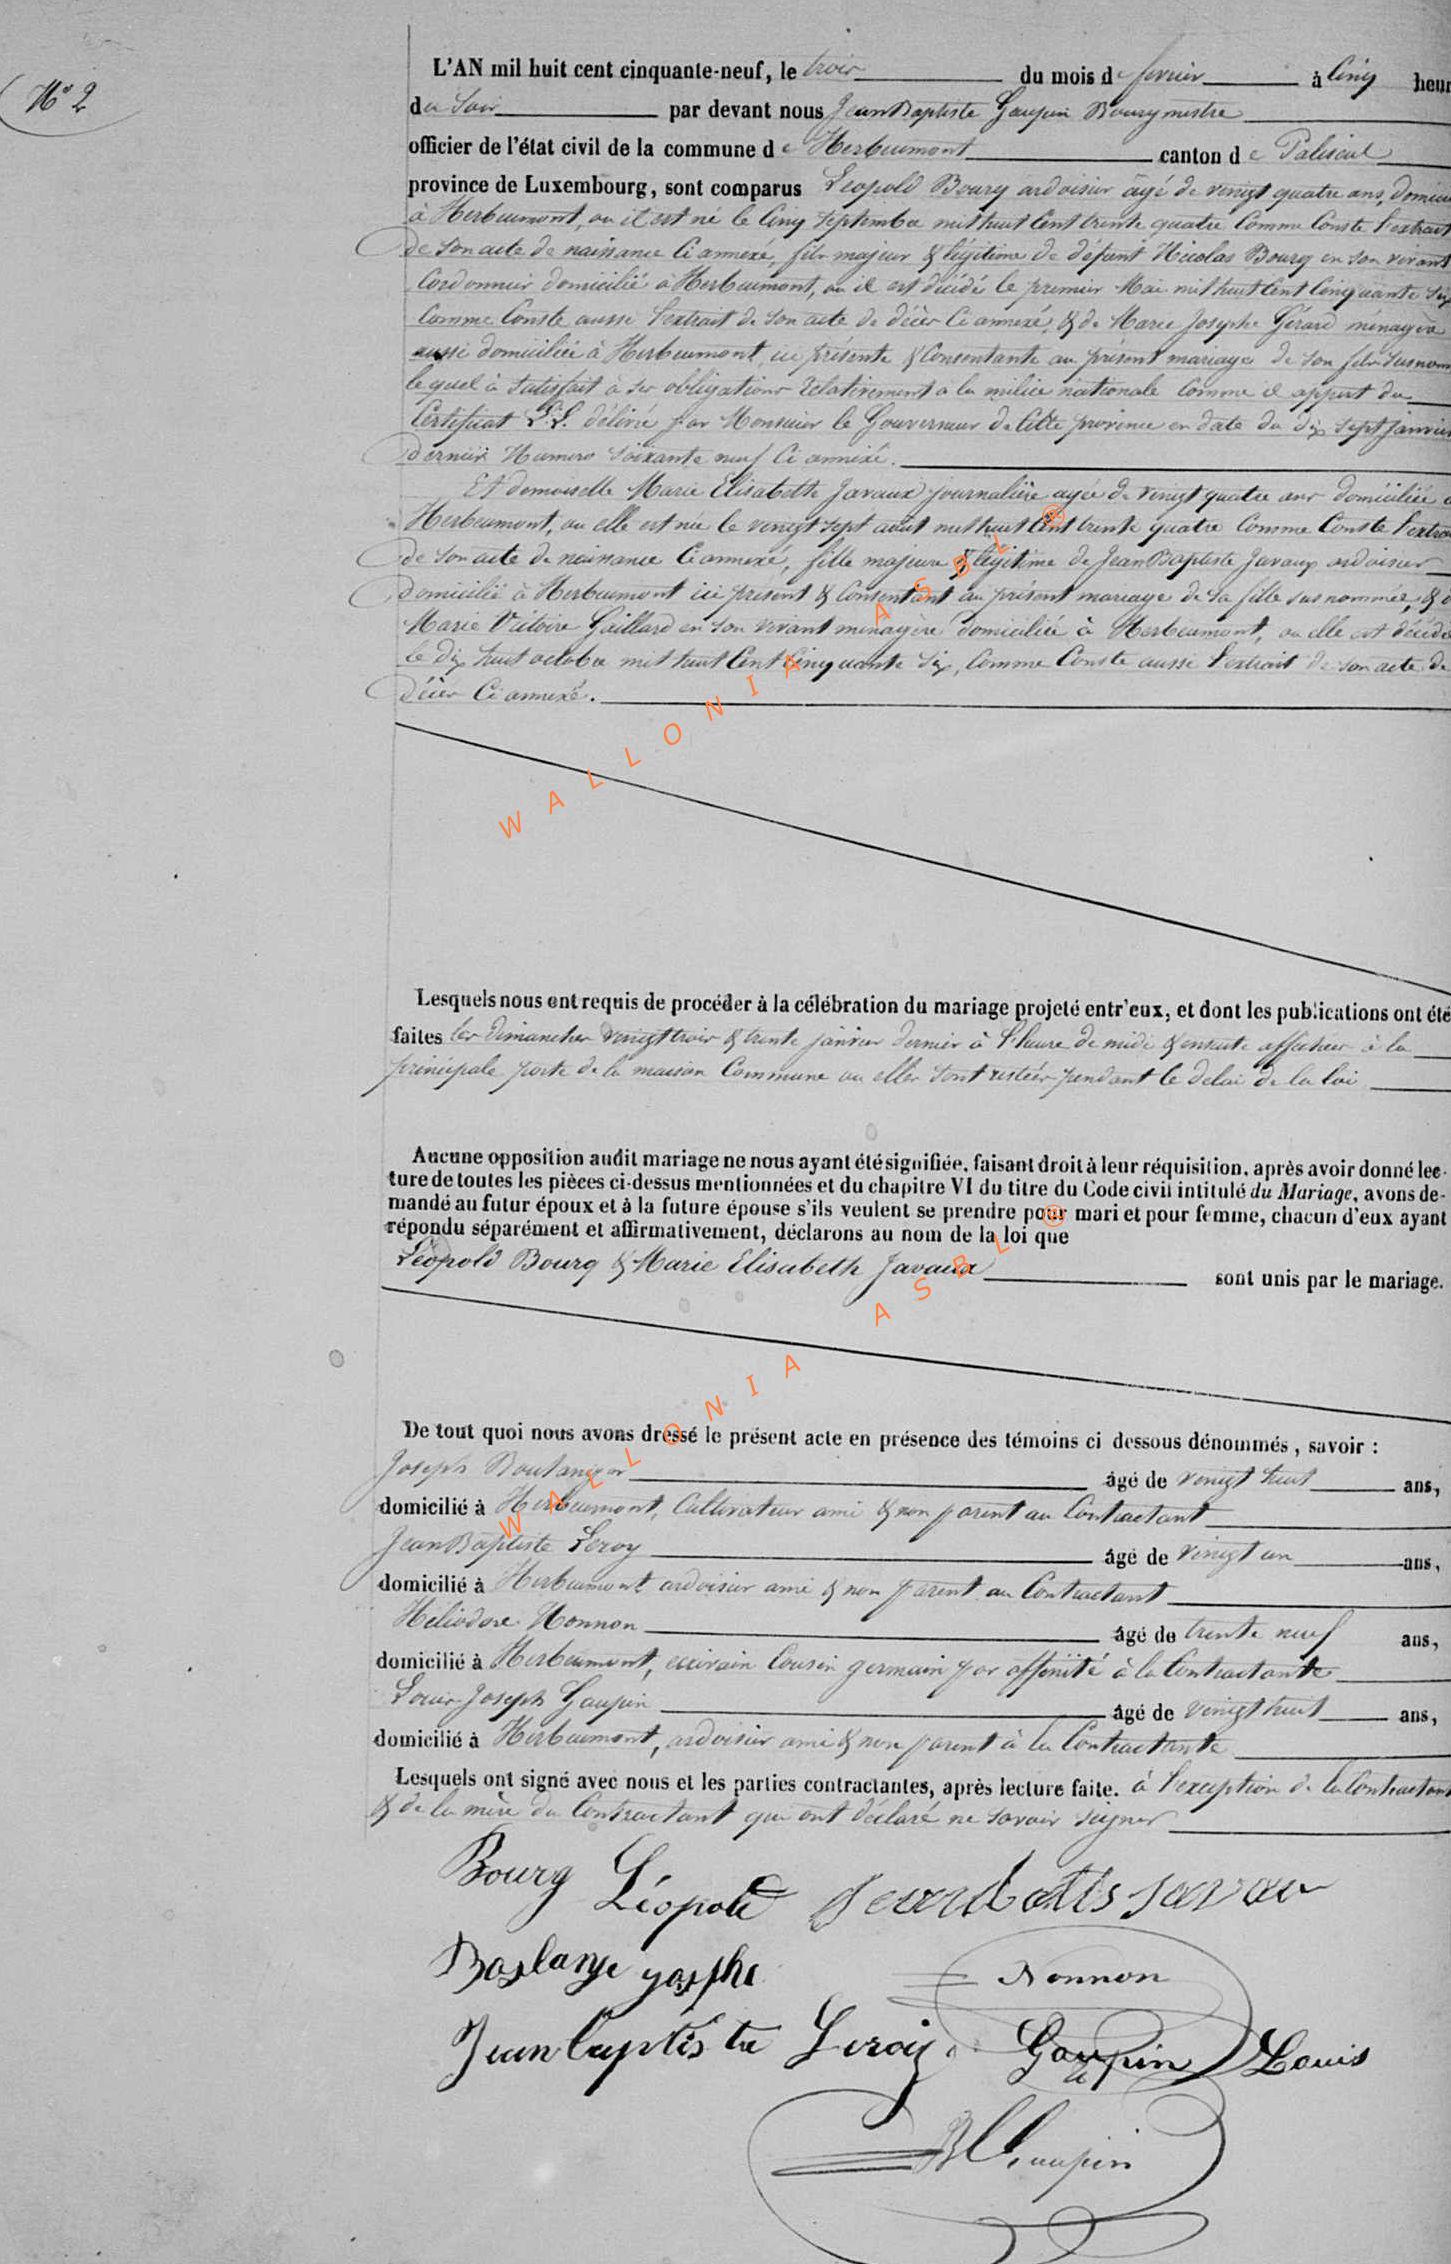 N° 2
L'AN mil huit cent cinquante-neuf, le trois du mois de fevrier à Cinq heur
du Soir par devant nous Jean Baptiste Gaupin Bourgmestre
officier de l'état civil de la commune de Herbeumont canton de Paliseul
province de Luxembourg, sont comparus Léopold Bourg ardoisier âgé de vingt quatre ans, domici
à Herbeumont, ou il est né le Cinq Septembre mil huit Cent trente quatre Comme Conste l'extrait
de Son acte de naissance Ci annexé, fils majeur & légitime de défunt Nicolas Bourg en son vivant
Cordonnier domicilié à Herbeumont, ou il est décidé le premier Mai mil huit Cent Cinquante Six
Comme Conste aussi l'extrait de Son acte de décès Ci annexé, & de Marie Josephe Gérard ménagère
aussi domiciliée à Herbeumont, ici présente & Consentante au présent mariage de Son fils susnom
lequel à Satisfait à ses obligations relativement a la milice nationale Comme il appert du
Certificat L.L. délivré par Monsieur le Gouverneur de Cette province en date du dix Sept janvier
dernier Numero Soixante neuf Ci annexé.
Et demoiselle Marie Elisabeth Javaux journalière agée de vingt quatre ans domiciliée à
Herbeumont, ou elle est née le vingt Sept août mil huit Cent trente quatre Comme Conste l'extrai
de Son acte de naissance Ci annexé, fille majeure & légitime de Jean Baptiste Javaux ardoisier
Domicilié à Herbeumont ici présent & Consentant au présent mariage de Sa fille sus nommée, & d
Marie Victoire Gaillard en Son vivant menagère domiciliée à Herbeumont, ou elle est décidé
le dix huit octobre mil huit Cent Cinquante Six, Comme Conste aussi l'extrait de Son acte de
décès Ci annexé.
WALLONIA ASBL ®
Lesquels nous ont requis de procéder à la célébration du mariage projeté entr'eux, et dont les publications ont été
faites les Dimanches vingt trois & trente janvier dernier à l'heure de midi & ensuite affichées à la
principale porte de la maison Commune ou elles Sont restées pendant le delai de la loi
Aucune opposition audit mariage ne nous ayant été signifiée, faisant droit à leur réquisition, après avoir donné lec-
ture de toutes les pièces ci-dessus mentionnées et du chapitre VI du titre du Code civil intitulé du Mariage, avons de-
mandé au futur époux et à la future épouse s'ils veulent se prendre pour mari et pour femme, chacun d'eux ayant
répondu séparément et affirmativement, déclarons au nom de la loi que
Léopold Bourg & Marie Elisabeth Javaux sont unis par le mariage.
WALLONIA ASBL ®
De tout quoi nous avons dressé le présent acte en présence des témoins ci dessous dénommés, savoir :
Joseph Boulanger âgé de vingt huit ans,
domicilié à Herbeumont, Cultivateur ami & non parent au Contractant
Jean Baptiste Leroy âgé de vingt un ans,
domicilié à Herbeumont ardoisier ami & non parent au Contractant
Héliodore Nonnon âgé de trente neuf ans,
domicilié à Herbeumont, écrivain Cousin germain par affinité à la Contractante
Louis Joseph Gaupin âgé de vingt huit ans,
domicilié à Herbeumont, ardoisier ami & non parent à la Contractante
Lesquels ont signé avec nous et les parties contractantes, après lecture faite. à l'exception de la Contractant
& de la mère du Contractant qui ont déclaré ne savoir signer
Bourg Léopold Jeanbatis Javau
Boulange Josphe Nonnon
Jean baptiste Leroy Gaupin Louis
JB Gaupin